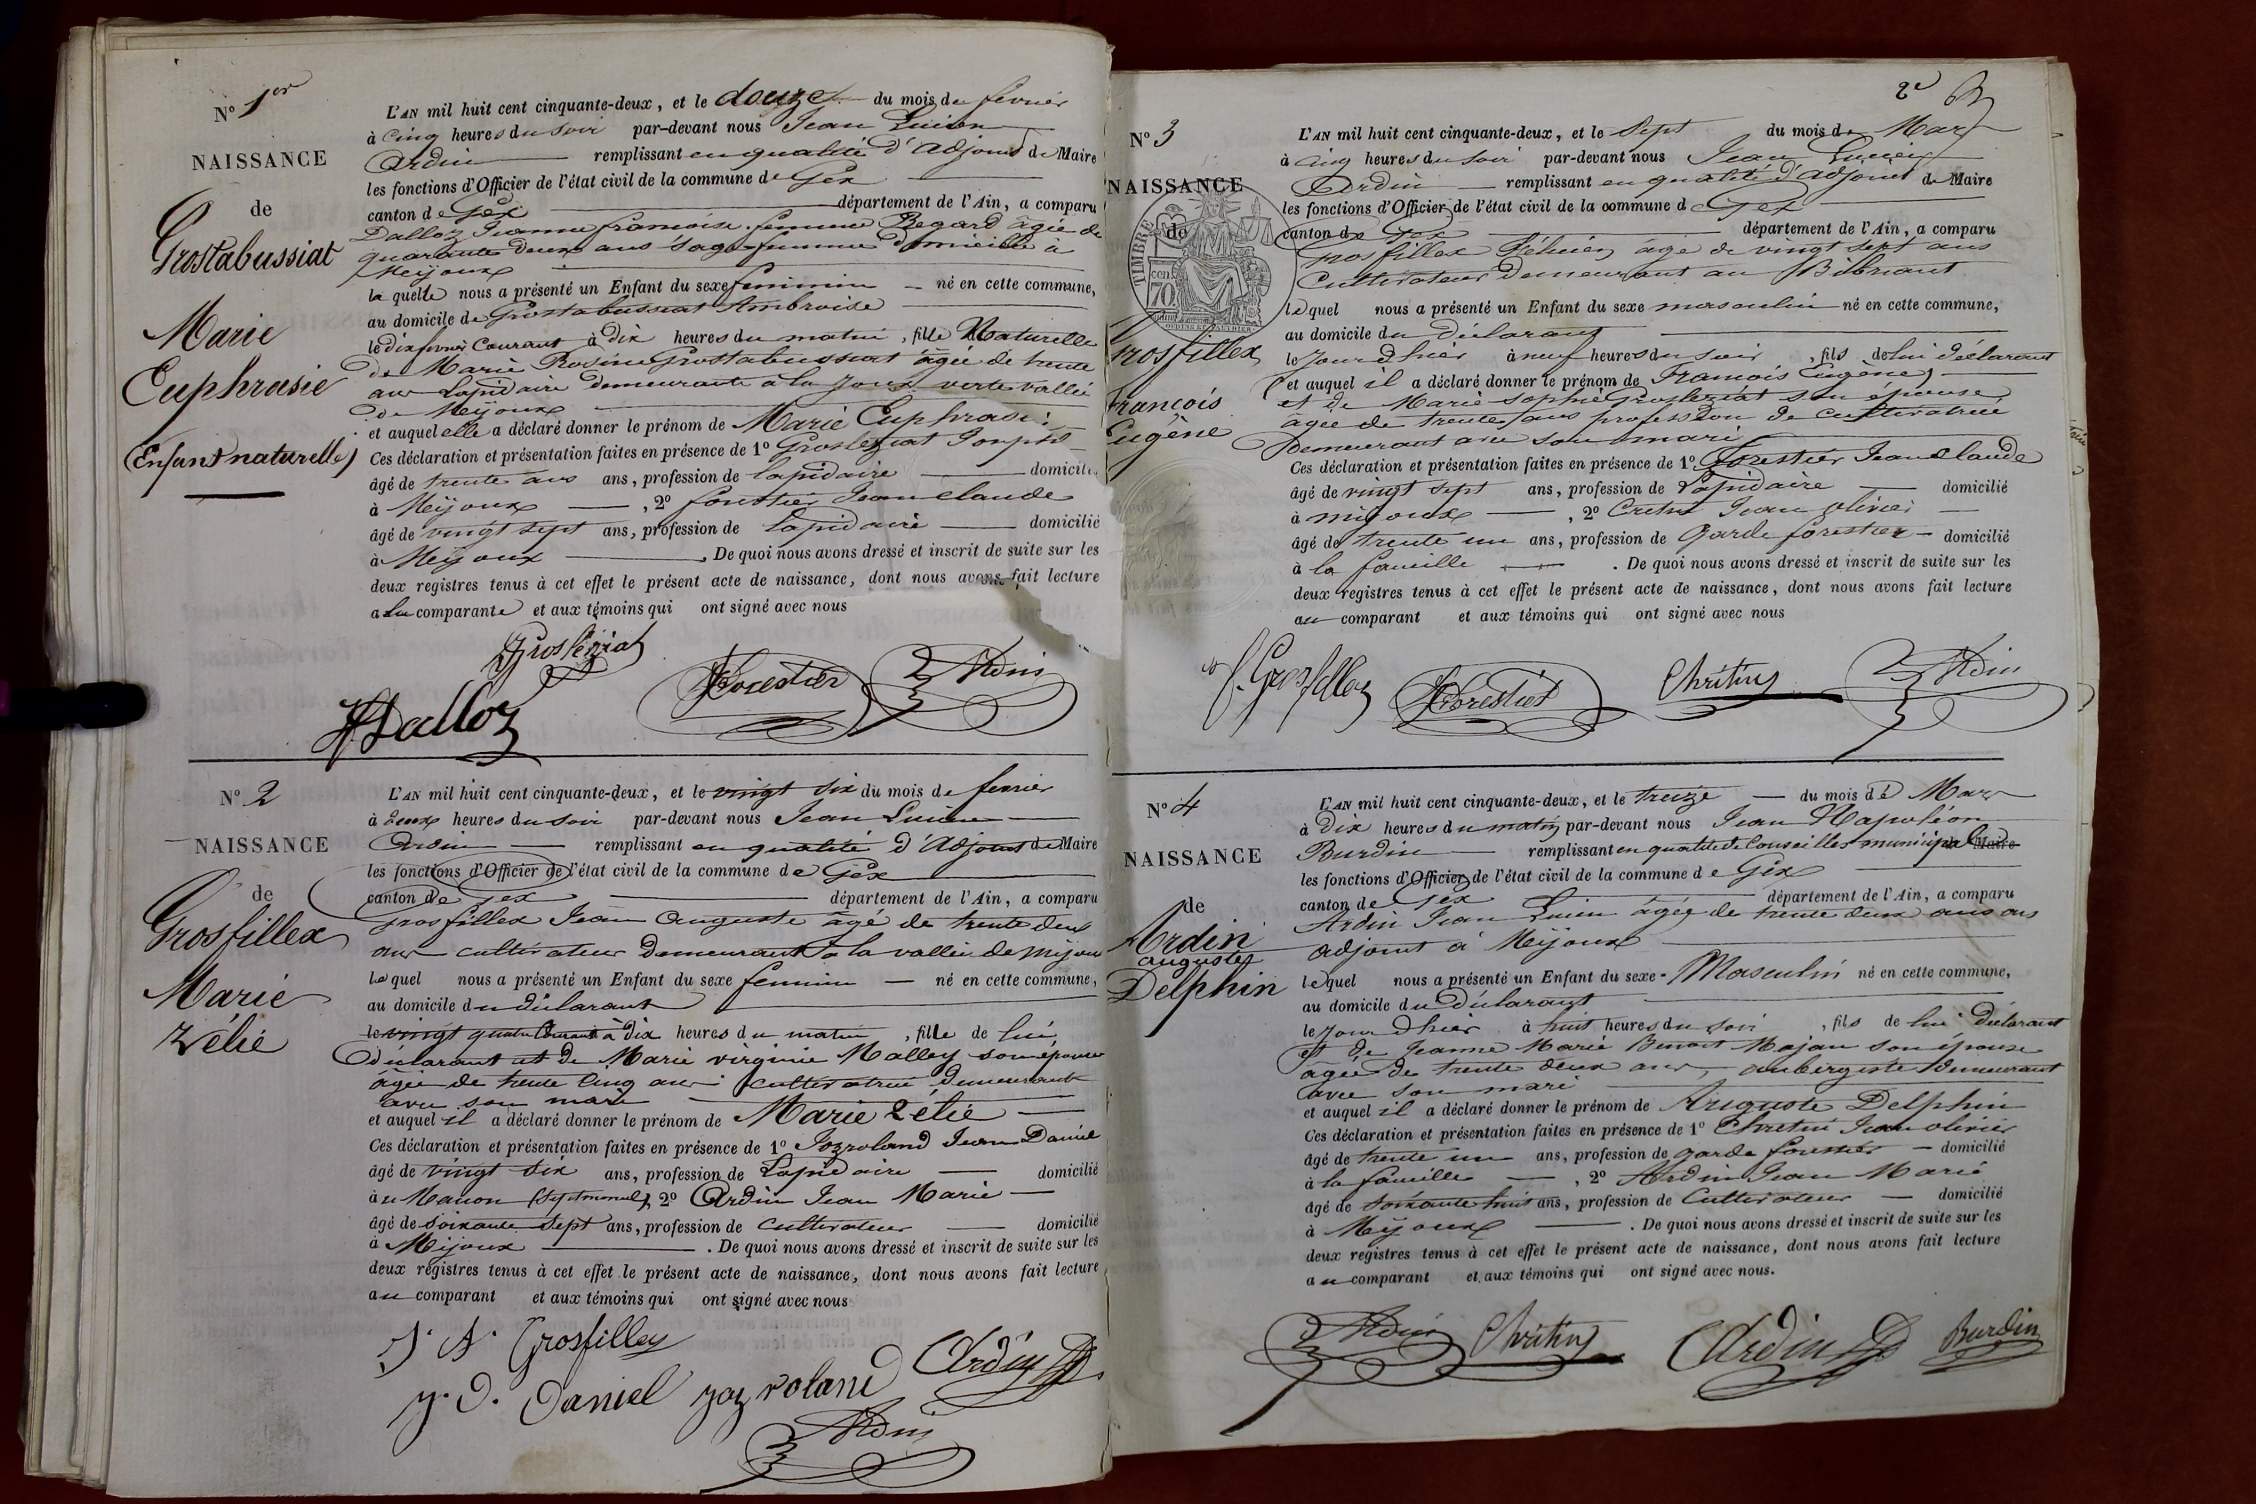 N° 1er
NAISSANCE
de
Grostabussiat
Marie
Euphrasie
(Enfant naturelle)
L'AN mil huit cent cinquante-deux, et le douze du mois de février
à cinq heures du soir par-devant nous Jean Lucien
Ardin remplissant en qualité d'adjoint de Maire
les fonctions d'Officier de l'état civil de la commune de Gex
canton de Gex département de l'Ain, a comparu
Dalloz Jeanne françoise femme Regard âgée de
quarante deux ans sage-femme domiciliée à
Meijoux
la quelle nous a présenté un Enfant du sexe féminin né en cette commune,
au domicile de Grostabussiat Ambroise
le dix février Courant à dix heures du matin, fille Naturelle
de Marie Rosine Grostabussiat âgée de trente
ans Lapidaire demeurante à la Joux verte vallée
de Meijoux
et auquel elle a déclaré donner le prénom de Marie Euphrasie
Ces déclaration et présentation faites en présence de 1° Grosléziat Joseph
âgé de trente ans ans, profession de lapidaire domicilié
à Meijoux, 2° forestier Jean claude
âgé de vingt sept ans, profession de lapidaire domicilié
à Meijoux. De quoi nous avons dressé et inscrit de suite sur les
deux registres tenus à cet effet le présent acte de naissance, dont nous avons fait lecture
a la comparante et aux témoins qui ont signé avec nous
Grosléziat
Forestier
Ardin
Dalloz
N° 2
NAISSANCE
de
Grosfillex
Marie
Zélie
L'AN mil huit cent cinquante-deux, et le vingt six du mois de fevrier
à deux heures du soir par-devant nous Jean Lucien
Ardin remplissant en qualité d'adjoint de Maire
les fonctions d'Officier de l'état civil de la commune de Gex
canton de Gex département de l'Ain, a comparu
Grosfillex Jean Auguste âgé de trente deux
ans cultivateur demeurant à la vallée de Mijoux
lequel nous a présenté un Enfant du sexe feminin né en cette commune,
au domicile du déclarant
le vingt quatre Courant à dix heures du matin, fille de lui
déclarant et de Marie virginie Malley son épouse
âgée de trente cinq ans cultivatrice demeurant
avec son mari
et auquel il a déclaré donner le prénom de Marie Zélie
Ces déclaration et présentation faites en présence de 1° Jozroland Jean Daniel
âgé de vingt six ans, profession de Lapidaire domicilié
à Manon (Septmoncel), 2° Ardin Jean Marie
âgé de soixante sept ans, profession de cultivateur domicilié
à Mijoux. De quoi nous avons dressé et inscrit de suite sur les
deux registres tenus à cet effet le présent acte de naissance, dont nous avons fait lecture
au comparant et aux témoins qui ont signé avec nous
J. A. Grosfillex
Ardin
j. d. Daniel joz roland
Ardin
2e
N° 3
NAISSANCE
de
TIMBRE
cen. 70
Grosfillex
François
Eugène
L'AN mil huit cent cinquante-deux, et le Sept du mois de Mars
à cinq heures du soir par-devant nous Jean Lucien
Ardin remplissant en qualité d'adjoint de Maire
les fonctions d'Officier de l'état civil de la commune de Gex
canton de Gex département de l'Ain, a comparu
Grosfillex Félicien âgé de vingt sept ans
Cultivateur demeurant au Bibriant
lequel nous a présenté un Enfant du sexe masculin né en cette commune,
au domicile du déclarant
le jour d'hier à neuf heures du soir, fils de lui déclarant
et auquel il a déclaré donner le prénom de François Eugène,
et de Marie sophie Grosléziat son épouse
âgée de trente ans profession de cultivatrice
demeurant avec son mari
Ces déclaration et présentation faites en présence de 1° Forestier Jean Claude
âgé de vingt sept ans, profession de Lapidaire domicilié
à mijoux, 2° Cretin Jean olivier
âgé de trente un ans, profession de garde forestier domicilié
à la faucille. De quoi nous avons dressé et inscrit de suite sur les
deux registres tenus à cet effet le présent acte de naissance, dont nous avons fait lecture
au comparant et aux témoins qui ont signé avec nous
f. Grosfillex
Forestier
Chrétin
Ardin
N° 4
NAISSANCE
de
Ardin
auguste
Delphin
L'AN mil huit cent cinquante-deux, et le treize du mois de Mars
à dix heures du matin par-devant nous Jean Napoléon
Burdin remplissant en qualité de Conseiller municipal Maire
les fonctions d'Officier de l'état civil de la commune de Gex
canton de Gex département de l'Ain, a comparu
Ardin Jean Lucien âgée de trente deux ans ans
adjoint à Meijoux
lequel nous a présenté un Enfant du sexe Masculin né en cette commune,
au domicile du déclarant
le jour d'hier à huit heures du soir, fils de lui déclarant
et de Jeanne Marie Benoit Majan son épouse
âgée de trente deux ans, aubergiste demeurant
avec son mari
et auquel il a déclaré donner le prénom de Auguste Delphin
Ces déclaration et présentation faites en présence de 1° Chretin Jean olivier
âgé de trente un ans, profession de garde forestier domicilié
à la faucille, 2° Ardin Jean Marie
âgé de soixante huit ans, profession de Cultivateur domicilié
à Meijoux. De quoi nous avons dressé et inscrit de suite sur les
deux registres tenus à cet effet le présent acte de naissance, dont nous avons fait lecture
au comparant et aux témoins qui ont signé avec nous.
Ardin
Chrétin
Ardin
Burdin